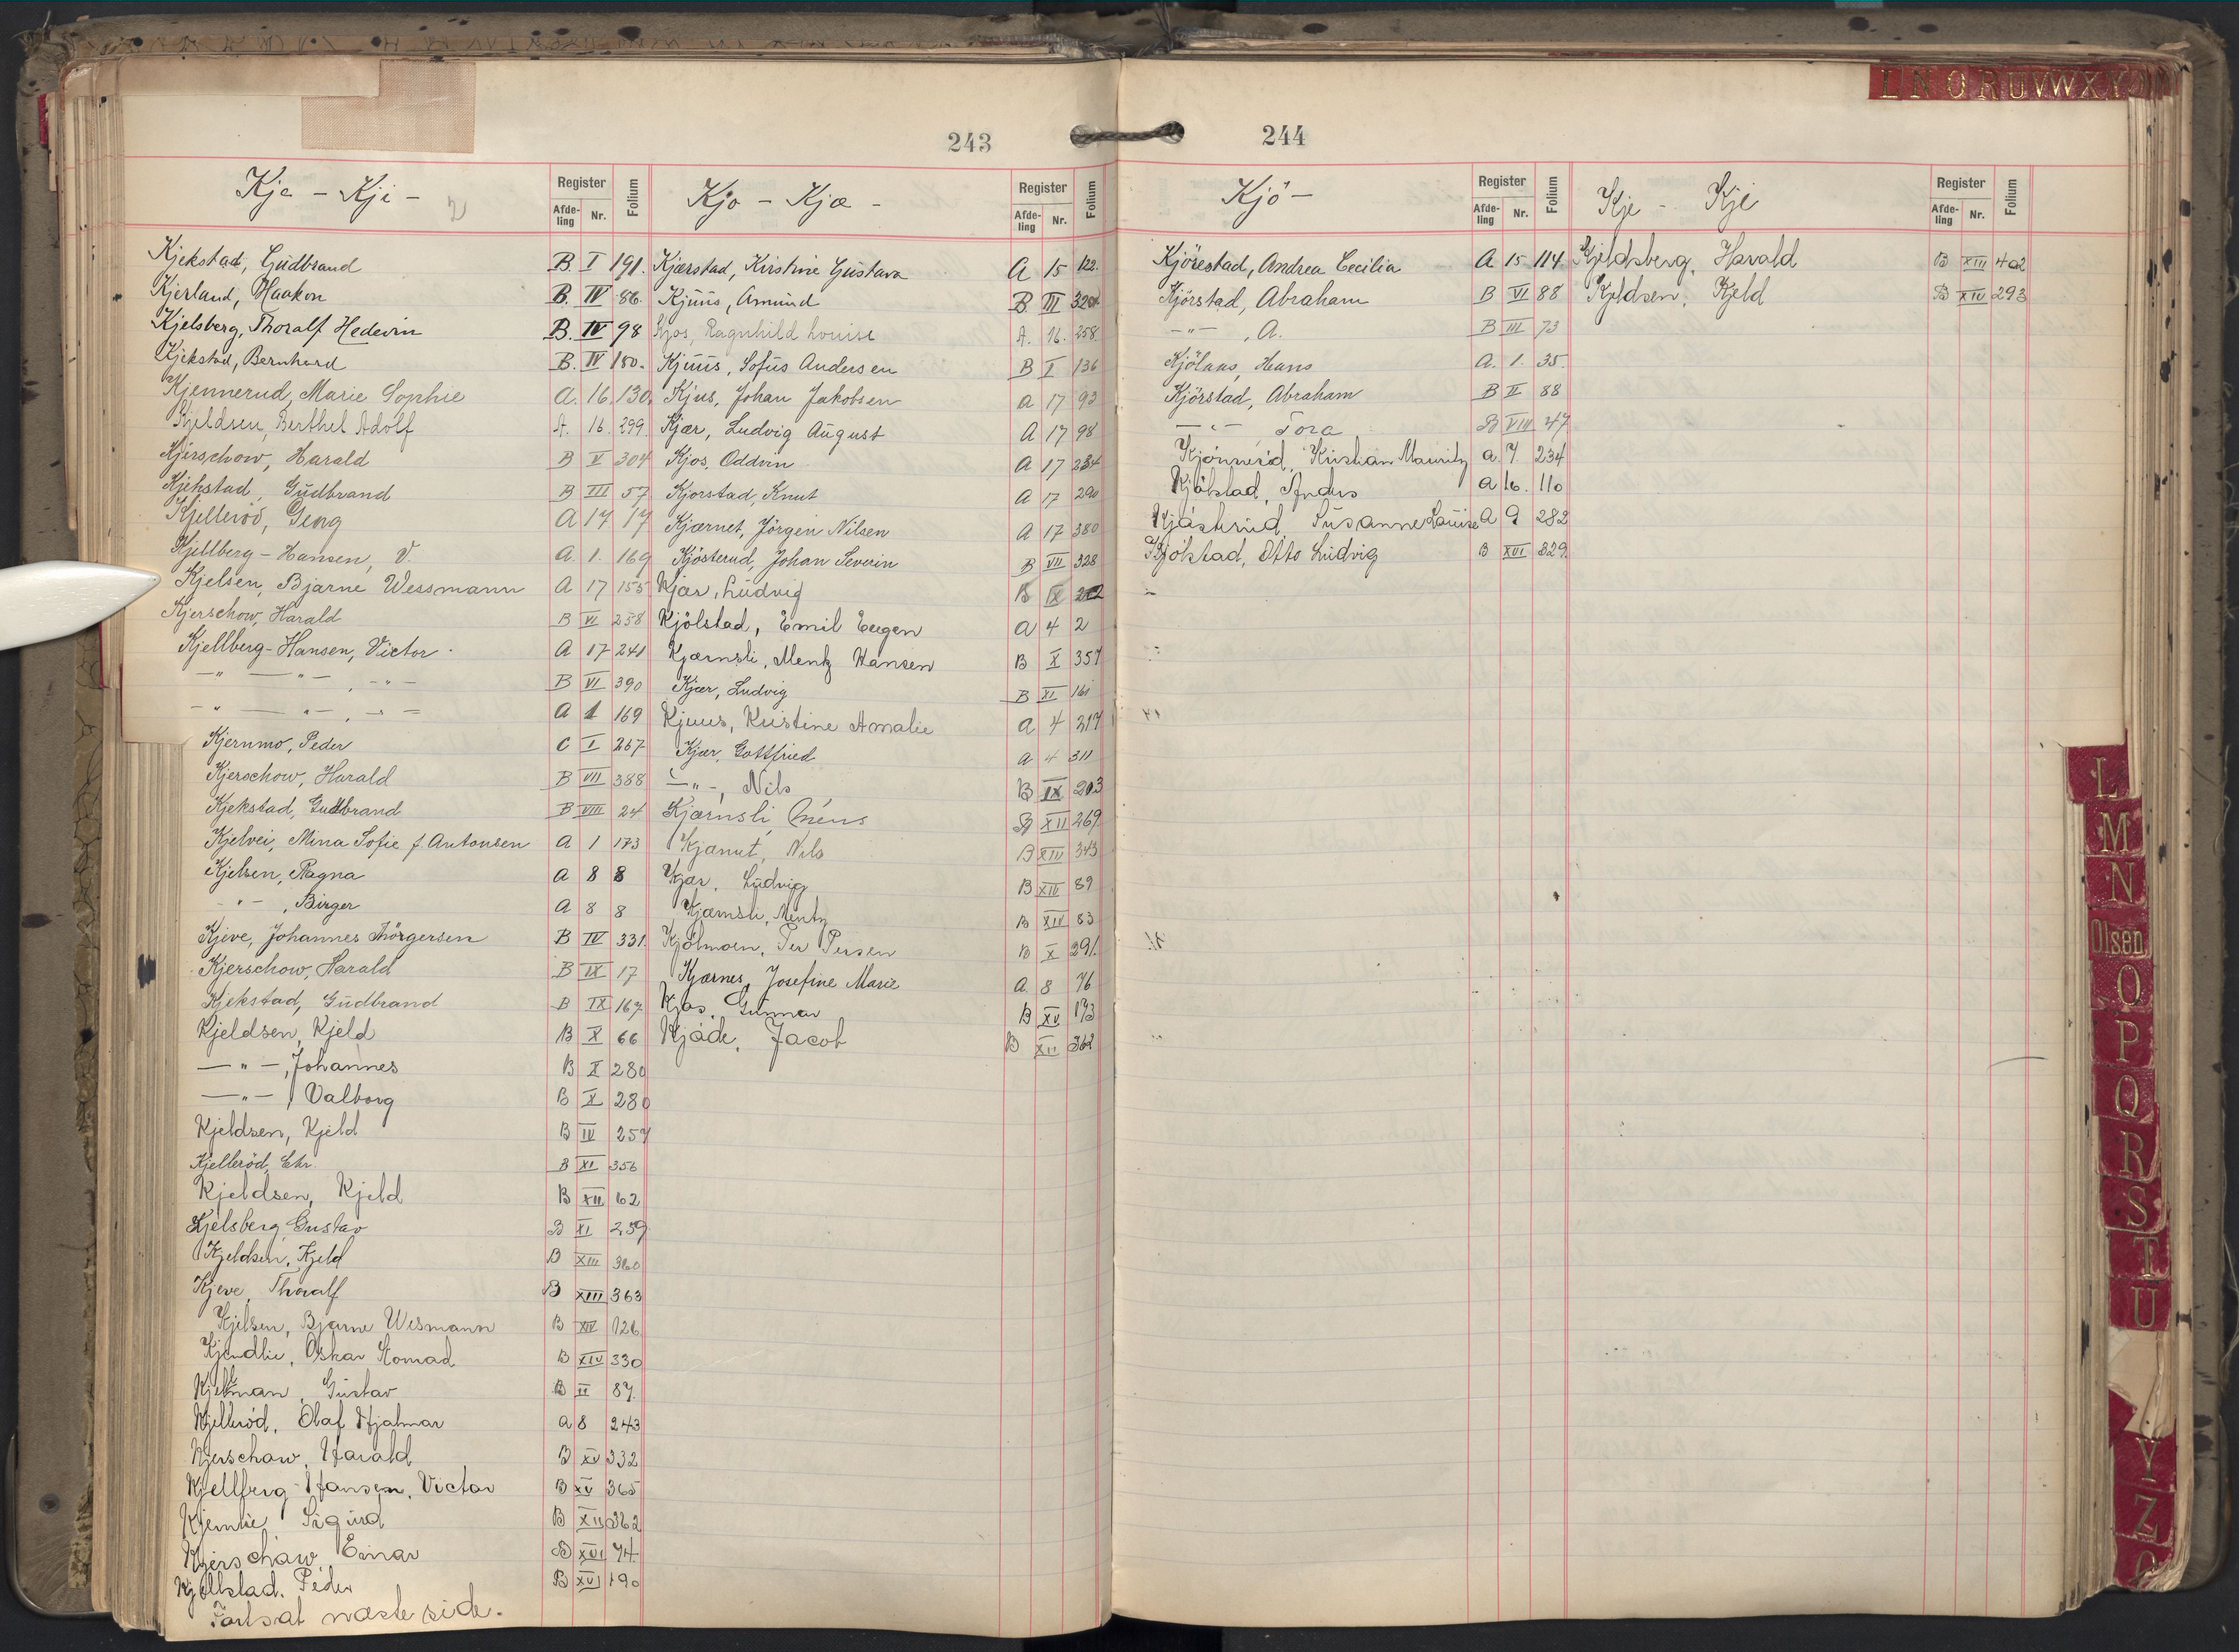 L N O R U V W X Y
243
Kje - Kji -
Register
Afde-
ling
Nr.
Folium
Kjekstad, Gudbrand B. I 191.
Kjerland, Haakon B. IV 86
Kjelsberg, Thoralf Hedevin B. IV 98
Kjekstad, Bernhard B. IV 150.
Kjennerud, Marie Sophie A. 16. 130.
Kjeldsen, Berthel Adolf A. 16 299.
Kjerschow, Harald B V 304
Kjekstad, Gudbrand B III 57
Kjelleröd, Georg A 17 17
Kjellberg-Hansen, V. A. 1. 169
Kjelsen, Bjarne Wessmann A 17 155
Kjerschow, Harald B VI 258
Kjellberg-Hansen, Victor A 17 241
-"- -"-, -"- B VI 390
-"- -"-, -"- A 1 169
Kjernmo, Peder C I 267
Kjerschow, Harald B VII 388
Kjekstad, Gudbrand B VIII 24
Kjelvei, Mina Sofie f. Antonsen A 1 173
Kjelsen, Ragna A 8 8
-"-, Birger A 8 8
Kjeve, Johannes Thörgersen B IV 331.
Kjerschow, Harald B IX 17
Kjekstad, Gudbrand B IX 167
Kjeldsen, Kjeld B X 66
-"-, Johannes B X 280
-"-, Valborg B X 280
Kjeldsen, Kjeld B IV 257
Kjelleröd, Chr. B XI 356
Kjeldsen, Kjeld B XII 62
Kjelsberg, Gustav B XI 259
Kjeldsen, Kjeld B XIII 360
Kjeve, Thoralf B XIII 363
Kjelsen, Bjarne Wesmann B XIV 126
Kjendlie, Oskar Konrad B XIV 330
Kjellman, Gustav B II 87.
Kjelleröd, Olaf Hjalmar A 8 243
Kjerschow, Harald B XV 332
Kjellberg-Hansen, Victor B XV 365
Kjemlie, Sigurd B XII 362
Kjerschow, Einar B XVI 74
Kjellstad, Peder B XVI 190
Fortsat næste side.
Kjo - Kjæ -
Register
Afde-
ling
Nr.
Folium
Kjærstad, Kirstine Gustava A 15 122.
Kjuus, Amund B III 320
Kjos, Ragnhild Louise A. 16. 258.
Kjuus, Sofus Andersen B I 136
Kjus, Johan Jakobsen A 17 92
Kjær, Ludvig August A 17 98
Kjos, Oddvin A 17 234
Kjorstad, Knut A 17 290
Kjærnet, Jörgen Nilsen A 17 380
Kjösterud, Johan Severin B VII 328
Kjær, Ludvig B IX
Kjölstad, Emil Eugen A 4 2
Kjærnsli, Mentz Hansen B X 357
Kjær, Ludvig B XI 161
Kjuus, Kristine Amalie A 4 217
Kjær, Gottfried A 4 311
-"-, Nils B IX 203
Kjærnsli, Mens B XII 269.
Kjærnet, Nils B XIV 343
Kjær, Ludvig B XIV 89
Kjærnsli, Mentz B XIV 83
Kjölmoen, Per Persen B X 391.
Kjærnes, Josefine Marie A. 8 76
Kjos, Gunnar B XV 173
Kjäde, Jacob B XII 362
244
Kjö -
Register
Afde-
ling
Nr.
Folium
Kjörestad, Andrea Cecilia A 15 114.
Kjörstad, Abraham B VI 88
-"-, A. B III 73
Kjölaas, Hans A. 1. 35.
Kjörstad, Abraham B II 88
-"-, Tora B VIII 47
Kjönneröd, Kristian Mauritz A. 7. 234
Kjölstad, Anders A 16. 110
Kjöstrud, Susanne Louise A 9 282
Kjölstad, Otto Ludvig B XVI 329.
Kje - Kje
Register
Afde-
ling
Nr.
Folium
Kjeldsberg, Harald B XIII 402
Kjeldsen, Kjeld B XIV 293
L
M
N
Olsen
O
P
Q
R
S
T
U
Y
Z